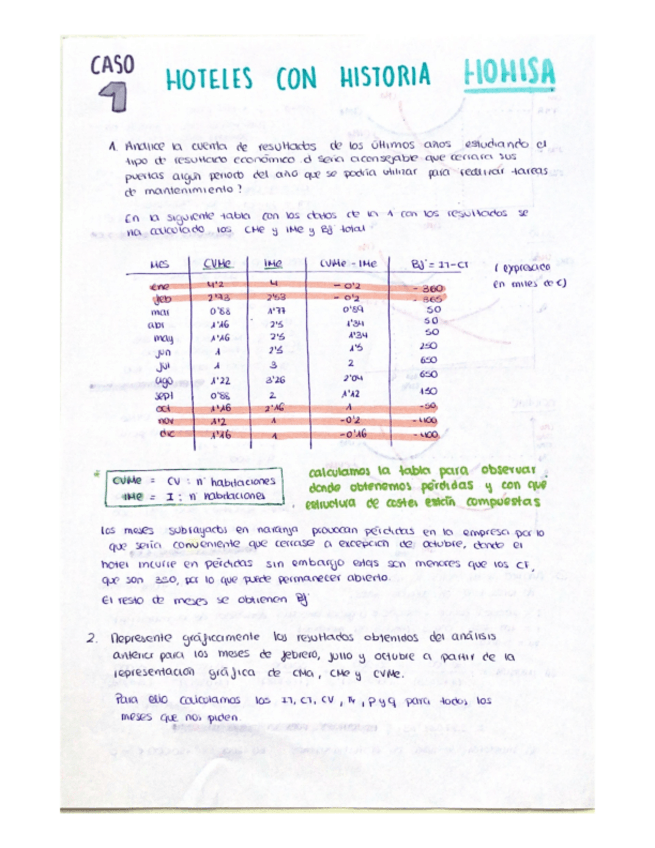 CASO 1 HOTELES CON HISTORIA HOHISA
1. Analice la cuenta de resultados de los últimos años estudiando el
tipo de resultado económico. d Sería aconsejable que cerrara sus
puertas algún periodo del año que se podría utilizar para realizar tareas
de mantenimiento?
En la siguiente tabla con los datos de la 1 con los resultados se
ha calculado los CMe y IMe y Bj° total
Mes CVMe IMe CVMe - IMe Bj° = IT-CT (expresado
en miles de €)
ene 4'2 4 - 0'2 - 360
feb 2'93 2'63 - 0'2 - 365
mar 0'88 1'77 0'89 50
abr 1'16 2'5 1'34 50
may 1'16 2'5 1'34 50
jun 1 2'5 1'5 250
jul 1 3 2 650
ago 1'22 3'26 2'04 650
sept 0'88 2 1'12 150
oct 1'16 2'16 1 -50
nov 1'2 1 -0'2 -400
dic 1'16 1 -0'16 -400
* CVMe = CV : nº habitaciones
IMe = I : nº habitaciones
calculamos la tabla para observar
donde obtenemos pérdidas y con qué
estructura de costes están compuestas
Los meses subrayados en naranja provocan pérdidas en la empresa por lo
que sería conveniente que cerrase a excepción de octubre, donde el
hotel incurre en pérdidas sin embargo estas son menores que los CF,
que son 350, por lo que puede permanecer abierto.
El resto de meses se obtienen Bj°
2. Represente gráficamente los resultados obtenidos del análisis
anterior para los meses de febrero, julio y octubre a partir de la
representación gráfica de CMa, CMe y CVMe.
Para ello calculamos los IT, CT, CV, P y q para todos los
meses que nos piden